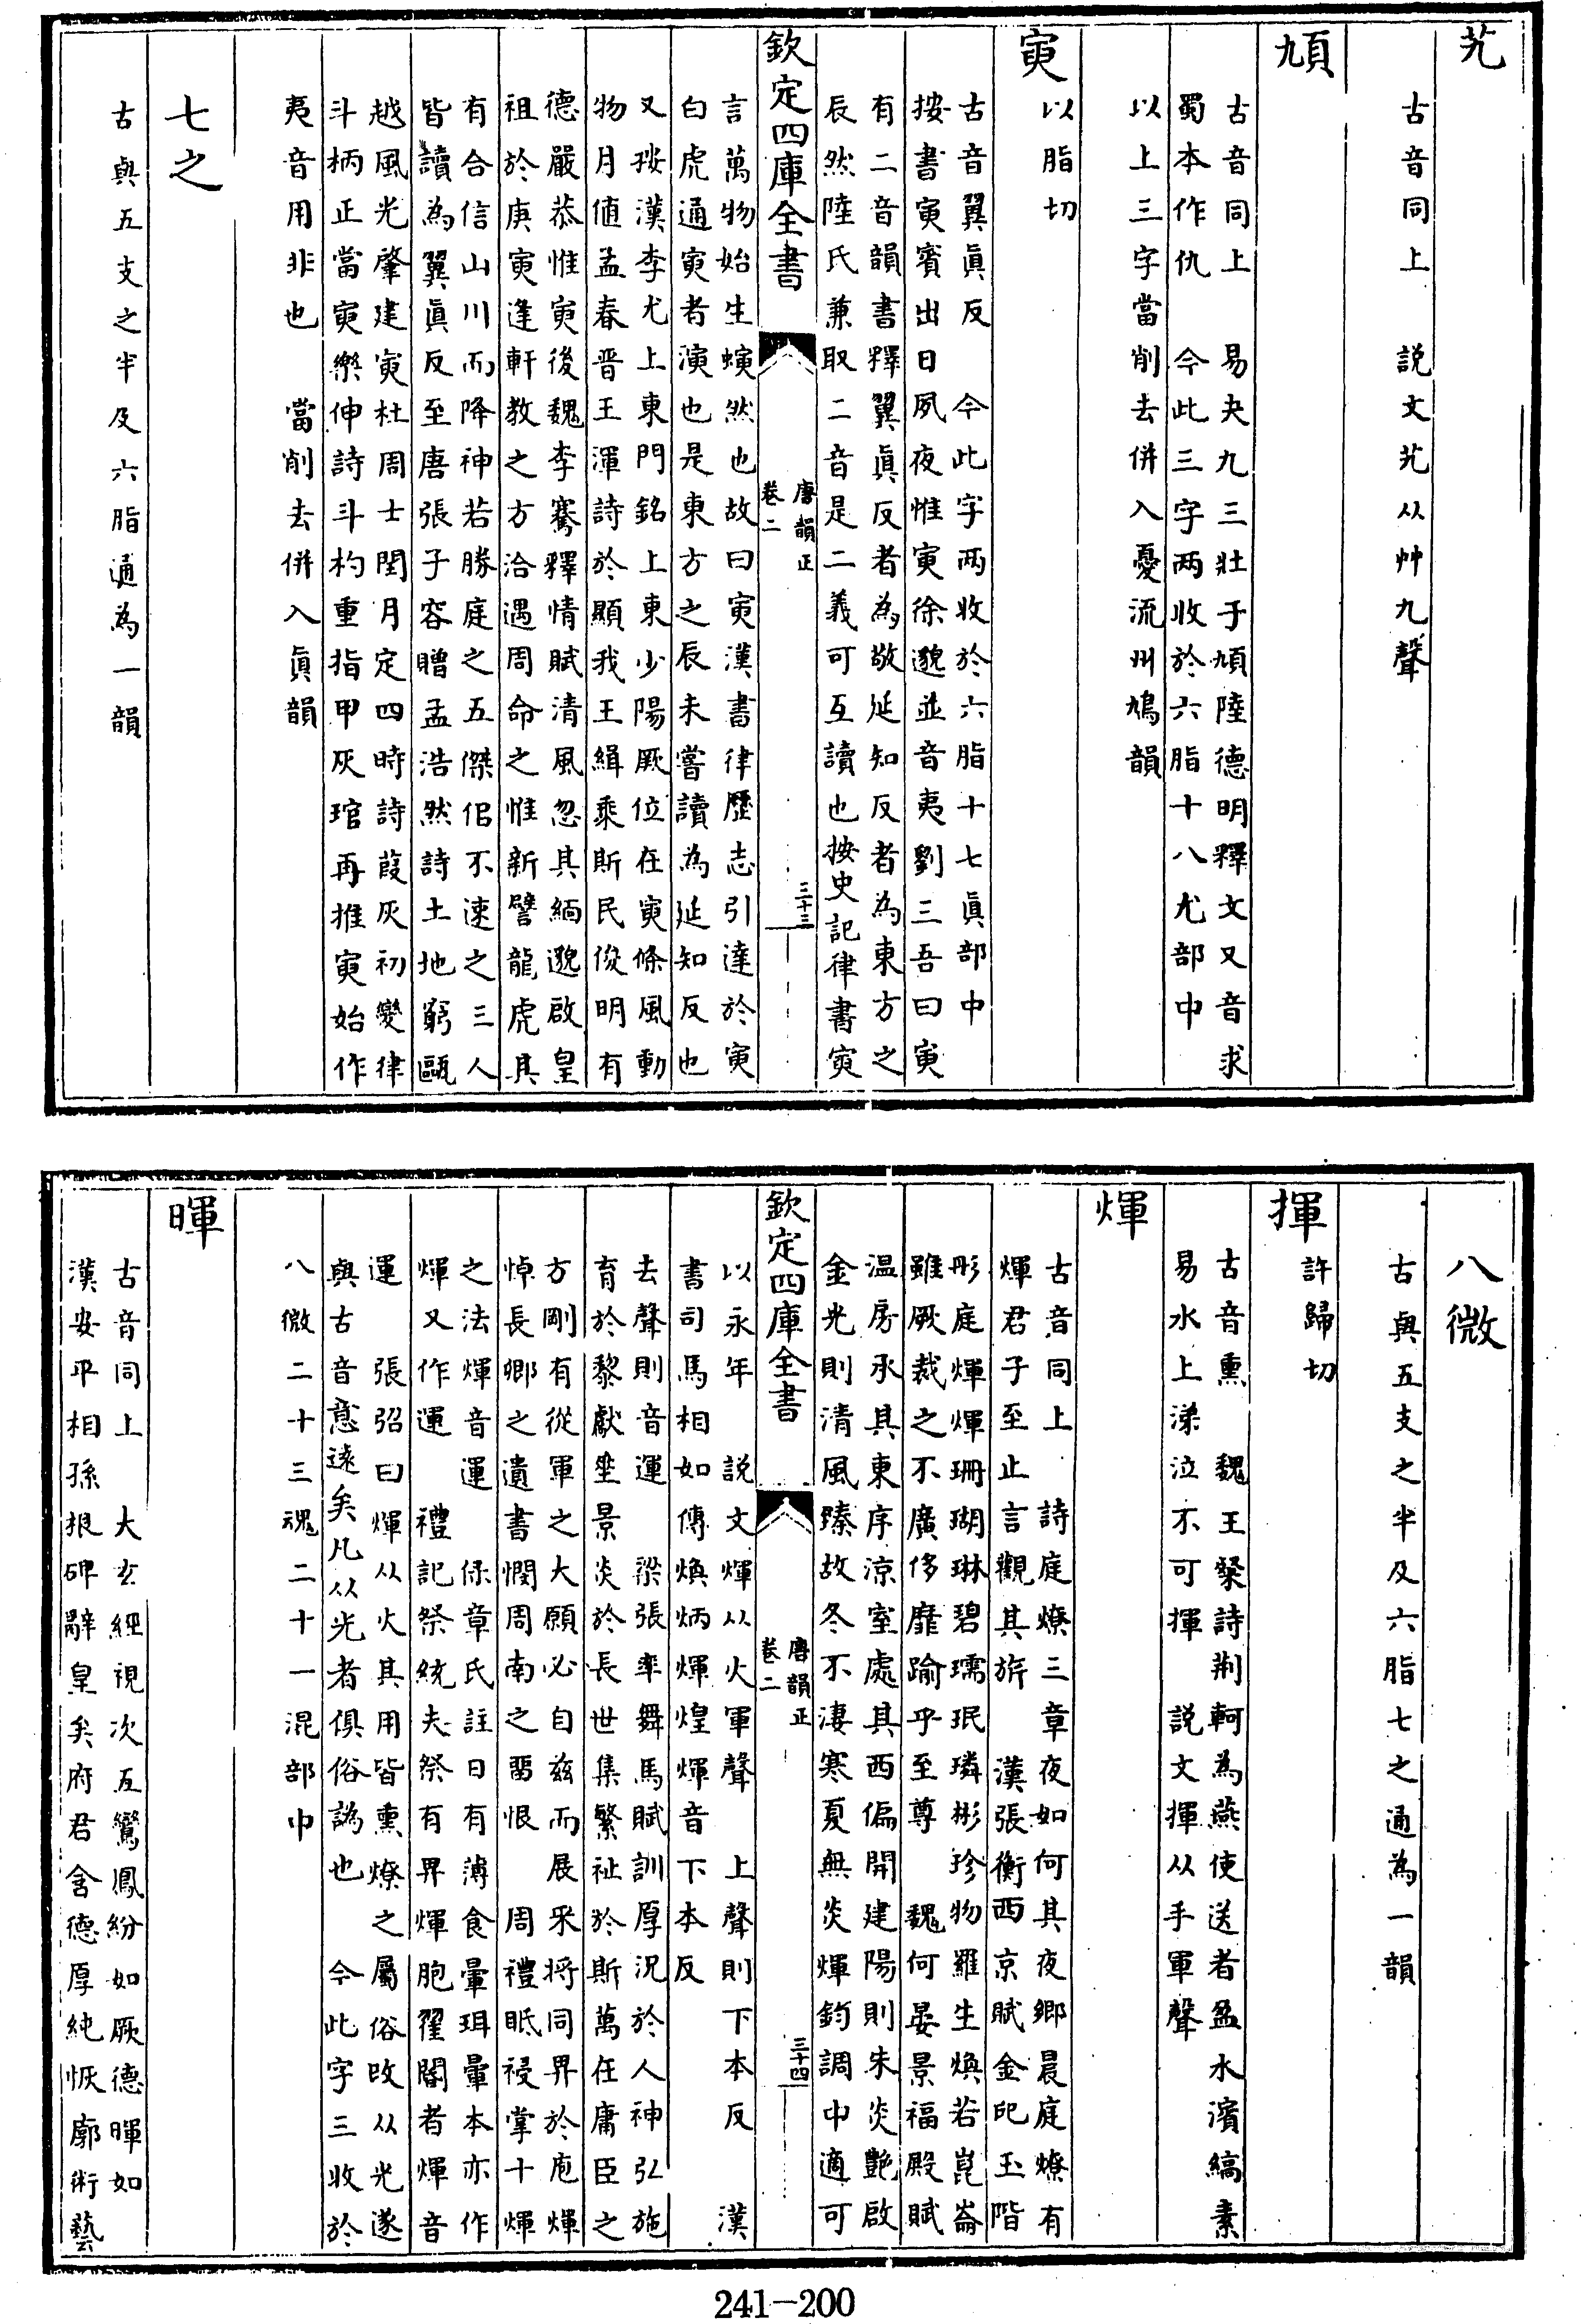 艽
古音同上　説文艽从艸九聲
頄
古音同上　易夬九三壯于頄陸德明釋文又音求
蜀本作仇　今此三字两收於六脂十八尤部中
以上三字當削去併入憂流州鳩韻
寅
以脂切
古音翼眞反　今此字两收於六脂十七眞部中
按書寅賓出日夙夜惟寅徐邈並音夷劉三吾曰寅
有二音韻書釋翼眞反者為敬延知反者為東方之
辰然陸氏兼取二音是二義可互讀也按史記律書寅
欽定四庫全書
唐韻正
卷二
三十三
言萬物始生螾然也故曰寅漢書律歷志引達於寅
白虎通寅者演也是東方之辰未嘗讀為延知反也
又按漢李尤上東門銘上東少陽厥位在寅條風動
物月值孟春晋王渾詩於顯我王緝乘斯民俊明有
德嚴恭惟寅後魏李騫釋情賦清風忽其緬邈啟皇
祖於庚寅逢軒教之方洽遇周命之惟新譬龍虎其
有合信山川而降神若勝庭之五傑佀不速之三人
皆讀為翼眞反至唐張子容贈孟浩然詩土地窮甌
越風光肇建寅杜周士閏月定四時詩葭灰初變律
斗柄正當寅樂伸詩斗杓重指甲灰琯再推寅始作
夷音用非也　當削去併入眞韻
七之
古與五支之半及六脂通為一韻
八微
古與五支之半及六脂七之通為一韻
揮
許歸切
古音熏　魏王粲詩荆軻為燕使送者盈水濱縞素
易水上涕泣不可揮　説文揮从手軍聲
煇
古音同上　詩庭燎三章夜如何其夜鄉晨庭燎有
煇君子至止言觀其旂　漢張衡西京賦金戺玉階
彤庭煇煇珊瑚琳碧瓀珉璘彬珍物羅生煥若崑崙
雖厥裁之不廣侈靡踰乎至尊　魏何晏景福殿賦
温房承其東序涼室處其西偏開建陽則朱炎艶啟
金光則清風臻故冬不淒寒夏無炎煇鈞調中適可
欽定四庫全書
唐韻正
卷二
三十四
以永年　説文煇从火軍聲　上聲則下本反　漢
書司馬相如傳煥炳煇煌煇音下本反
去聲則音運　梁張率舞馬賦訓厚況於人神弘施
育於黎獻坐景炎於長世集繁祉於斯萬在庸臣之
方剛有從軍之大願必自兹而展釆将同畀於庖煇
悼長卿之遺書憫周南之留恨　周禮眂祲掌十煇
之法煇音運　保章氏註日有薄食暈珥暈本亦作
煇又作運　禮記祭統夫祭有畀煇胞翟閽者煇音
運　張弨曰煇从火其用皆熏燎之屬俗改从光遂
與古音意逺矣凡从光者俱俗譌也　今此字三收於
八微二十三魂二十一混部中
暉
古音同上　大玄經視次五鸞鳳紛如厥德暉如
漢安平相孫根碑辭皇矣府君含德厚純恢廓術藝
241-200